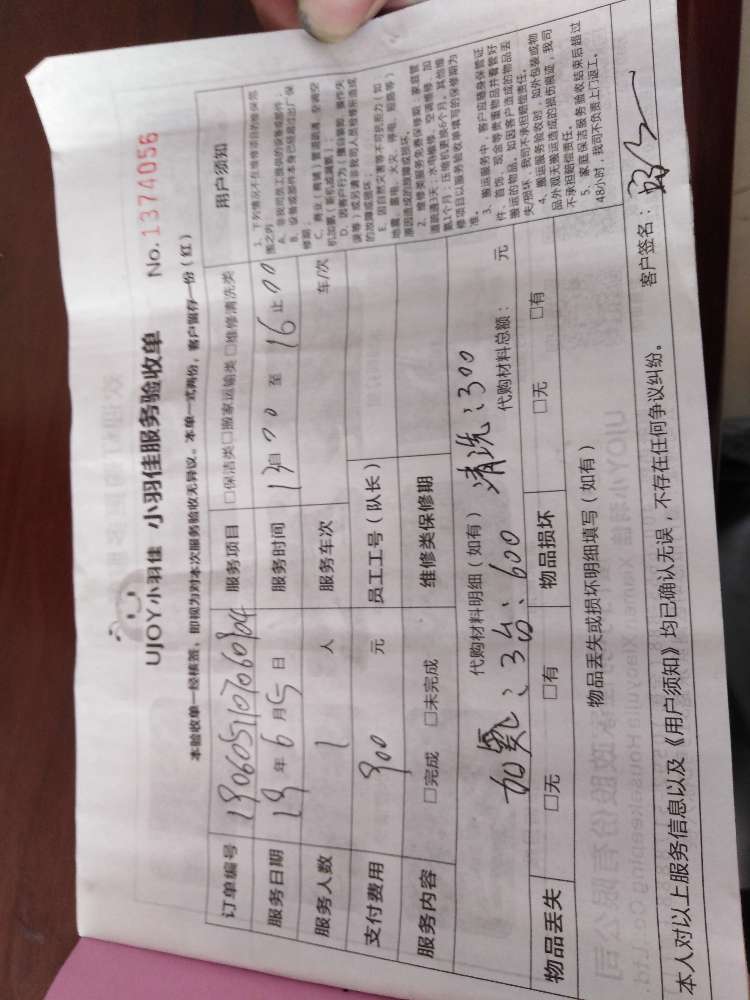 UJOY小羽佳 小羽佳服务验收单 No.1374056
本验收单一经核签，即视为对本次服务验收无异议。本单一式两份，客户留存一份（红）
订单编号 服务项目 □保洁类□搬家运输类 □维修清洗类
服务日期 19年6月5日 服务时间 自 至16 止00
服务人数 1 人 服务车次 车/次
支付费用 900 元 员工工号（队长）
服务内容 □完成 □未完成 维修类保修期
代购材料明细（如有） 代购材料总额： 元
加氟：3台：600 清洗：300
物品丢失 □无 □有 物品损坏 □无 □有
物品丢失或损坏明细填写（如有）
本人对以上服务信息以及《用户须知》均已确认无误，不存在任何争议纠纷。 客户签名：
用户须知
1、下列情况不在维修项目的维保范
围之内
A、非我司员工提供的设备或部件，
B、设备或部件本身已经超过出厂保
修期
D、因客户行为
的故障或损坏；
E、因自然灾害等不可抗拒力（如：
地震、雷电、火灾、停电、短路等）
原因造成的故障或损坏。
2、维修类服务免费保修期：家庭管
道疏通3天；水电维修、空调维修、加
氟1个月；压缩机更换6个月，其他维
修项目以服务验收单填写的保修期为
准。
3、搬运服务中，客户应随身保管证
件、首饰、现金等贵重物品并看管好
搬运的物品。如因客户造成的物品丢
失/损坏，我司不承担赔偿责任。
4、搬运服务验收时，如外包装或物
品外观无搬运造成的损伤痕迹，我司
不承担赔偿责任。
5、家庭保洁服务验收结束后超过
48小时，我司不负责上门返工。